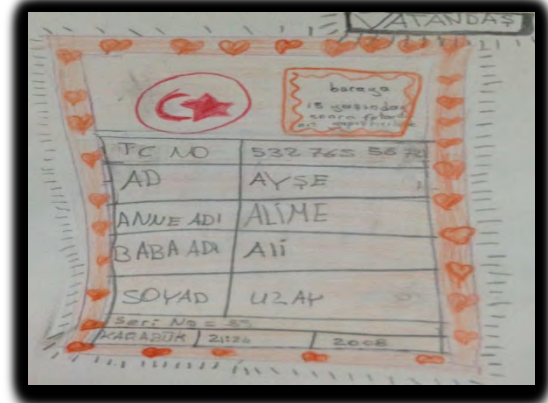 VATANDAŞ
buraya
15 yaşından
sonra fotoğraf
TC NO 532 765 56
AD AYŞE
ANNE ADI ALİME
BABA ADI Ali
SOYAD UZAY
Seri No =
KARABÜK 21:24 2008